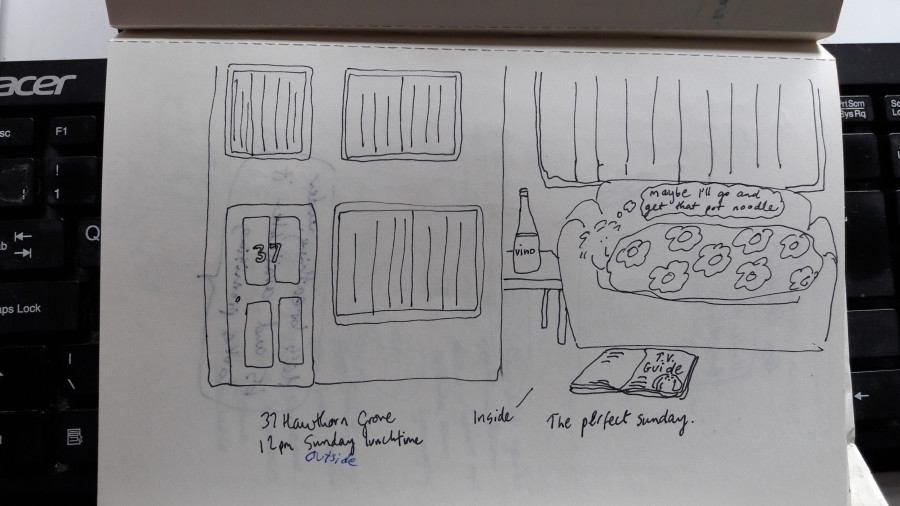 acer
sc
F1
!
1
!
Q
ab
aps Lock
|
\
PrtScn
SysRq
Sc
37
vino
maybe I'll go and
get that pot noodle
T.V.
Guide
37 Hawthorn Grove
12pm Sunday lunchtime
outside
Inside
The perfect sunday.